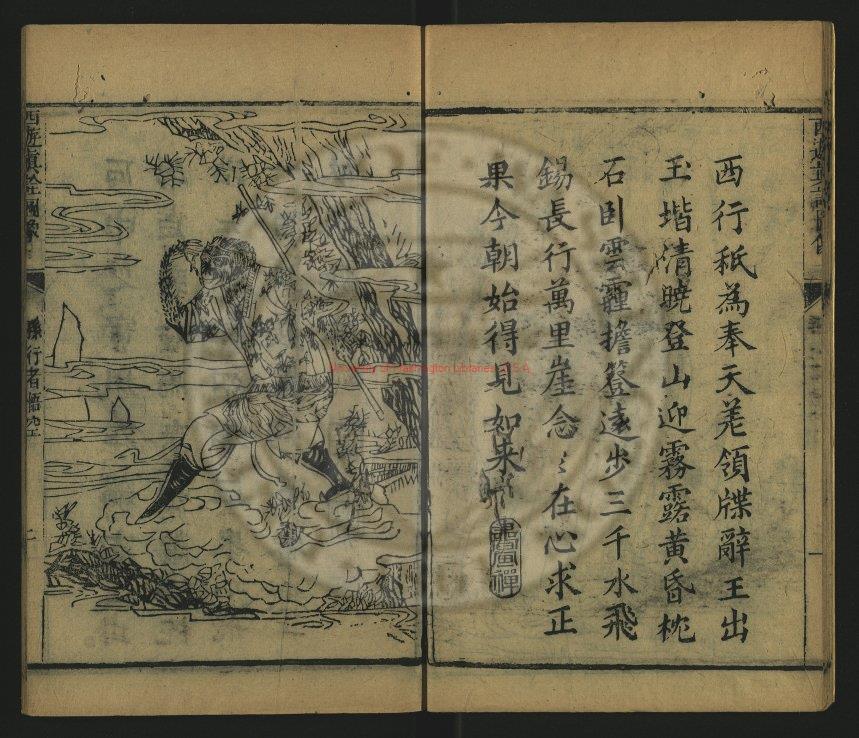 西行秪為奉天差領牒辭王出
玉堦清曉登山迎霧露黃昏枕
石臥雲霾擔簦遠步三千水飛
錫長行萬里崖念〻在心求正
果今朝始得見如来
西遊真詮圖像
孫行者悟空
二
一
University of Washington Libraries U.S.A.